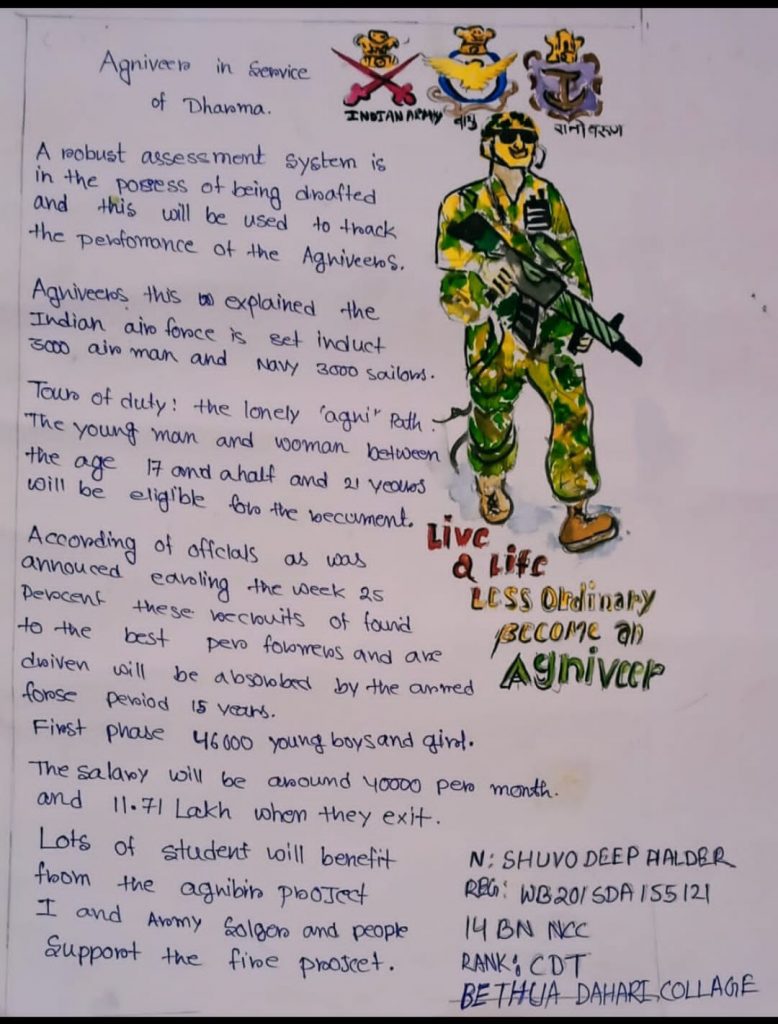 Agniveer in Service
of Dharma.
INDIAN ARMY
वायु
A robust assessment system is
in the possess of being drafted
and this will be used to track
the perfomance of the Agniveers.
Agniveers this explained the
Indian air force is set induct
3000 air man and Navy 3000 sailors.
Tour of duty: the lonely 'agni" Path:
The young man and woman between
the age 17 and ahalf and 21 years
will be eligible for the recument.
According of offcials as was
annouced earling the week 25
Percent these recruits of found
to the best per formers and are
driven will be absorbed by the armed
forse period 15 years.
First phase 46000 young boys and girl.
The salary will be around 40000 per month.
and 11.71 Lakh when they exit.
Lots of student will benefit
from the agnibir project
I and Army Solger and people
Support the fire project.
Live
a Life
LESS Ordinary
BECOME an
Agniveer
N: SHUVO DEEP HALDER
REG: WB20/SDA/155121
14 BN NCC
RANK: CDT
BETHUA DAHARI COLLAGE